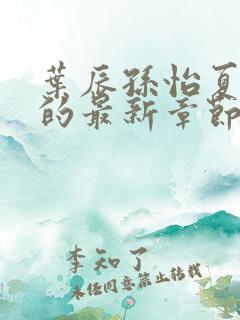 葉辰孫怡夏
的最新章節
李知了
未經同意禁止轉載